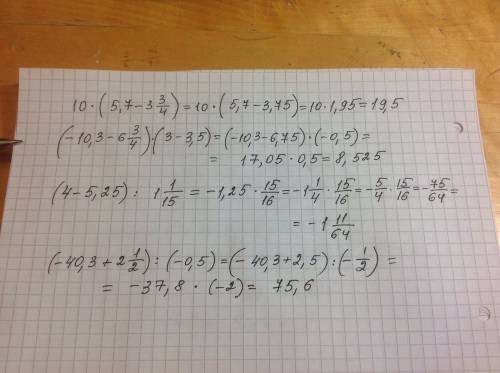 10·(5,7-3 3/4)=10·(5,7-3,75)=10·1,95=19,5
(-10,3-6 3/4)·(3-3,5)=(-10,3-6,75)·(-0,5)=
= 17,05·0,5=8,525
(4-5,25): 1 1/15 = -1,25·15/16=-1 1/4·15/16=-5/4·15/16=-75/64=
= -1 11/64
(-40,3+2 1/2):(-0,5)=(-40,3+2,5):(-1/2) =
= -37,8·(-2)= 75,6